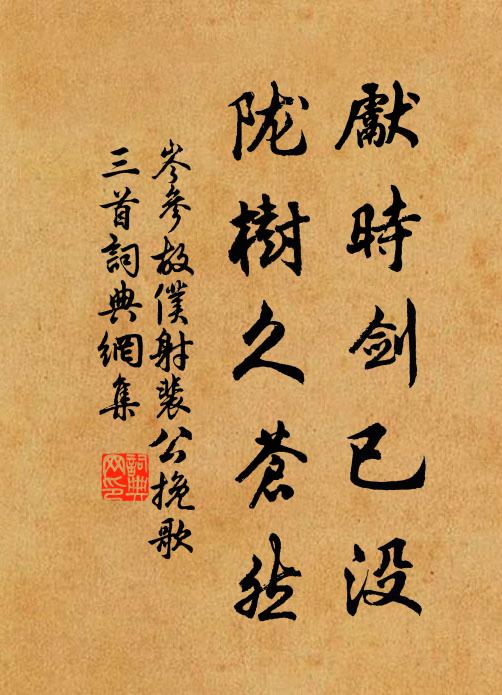 獻時剑已没
陇樹久蒼然
岑參故僕射裴公挽歌
三首詞典網集
詞典网印